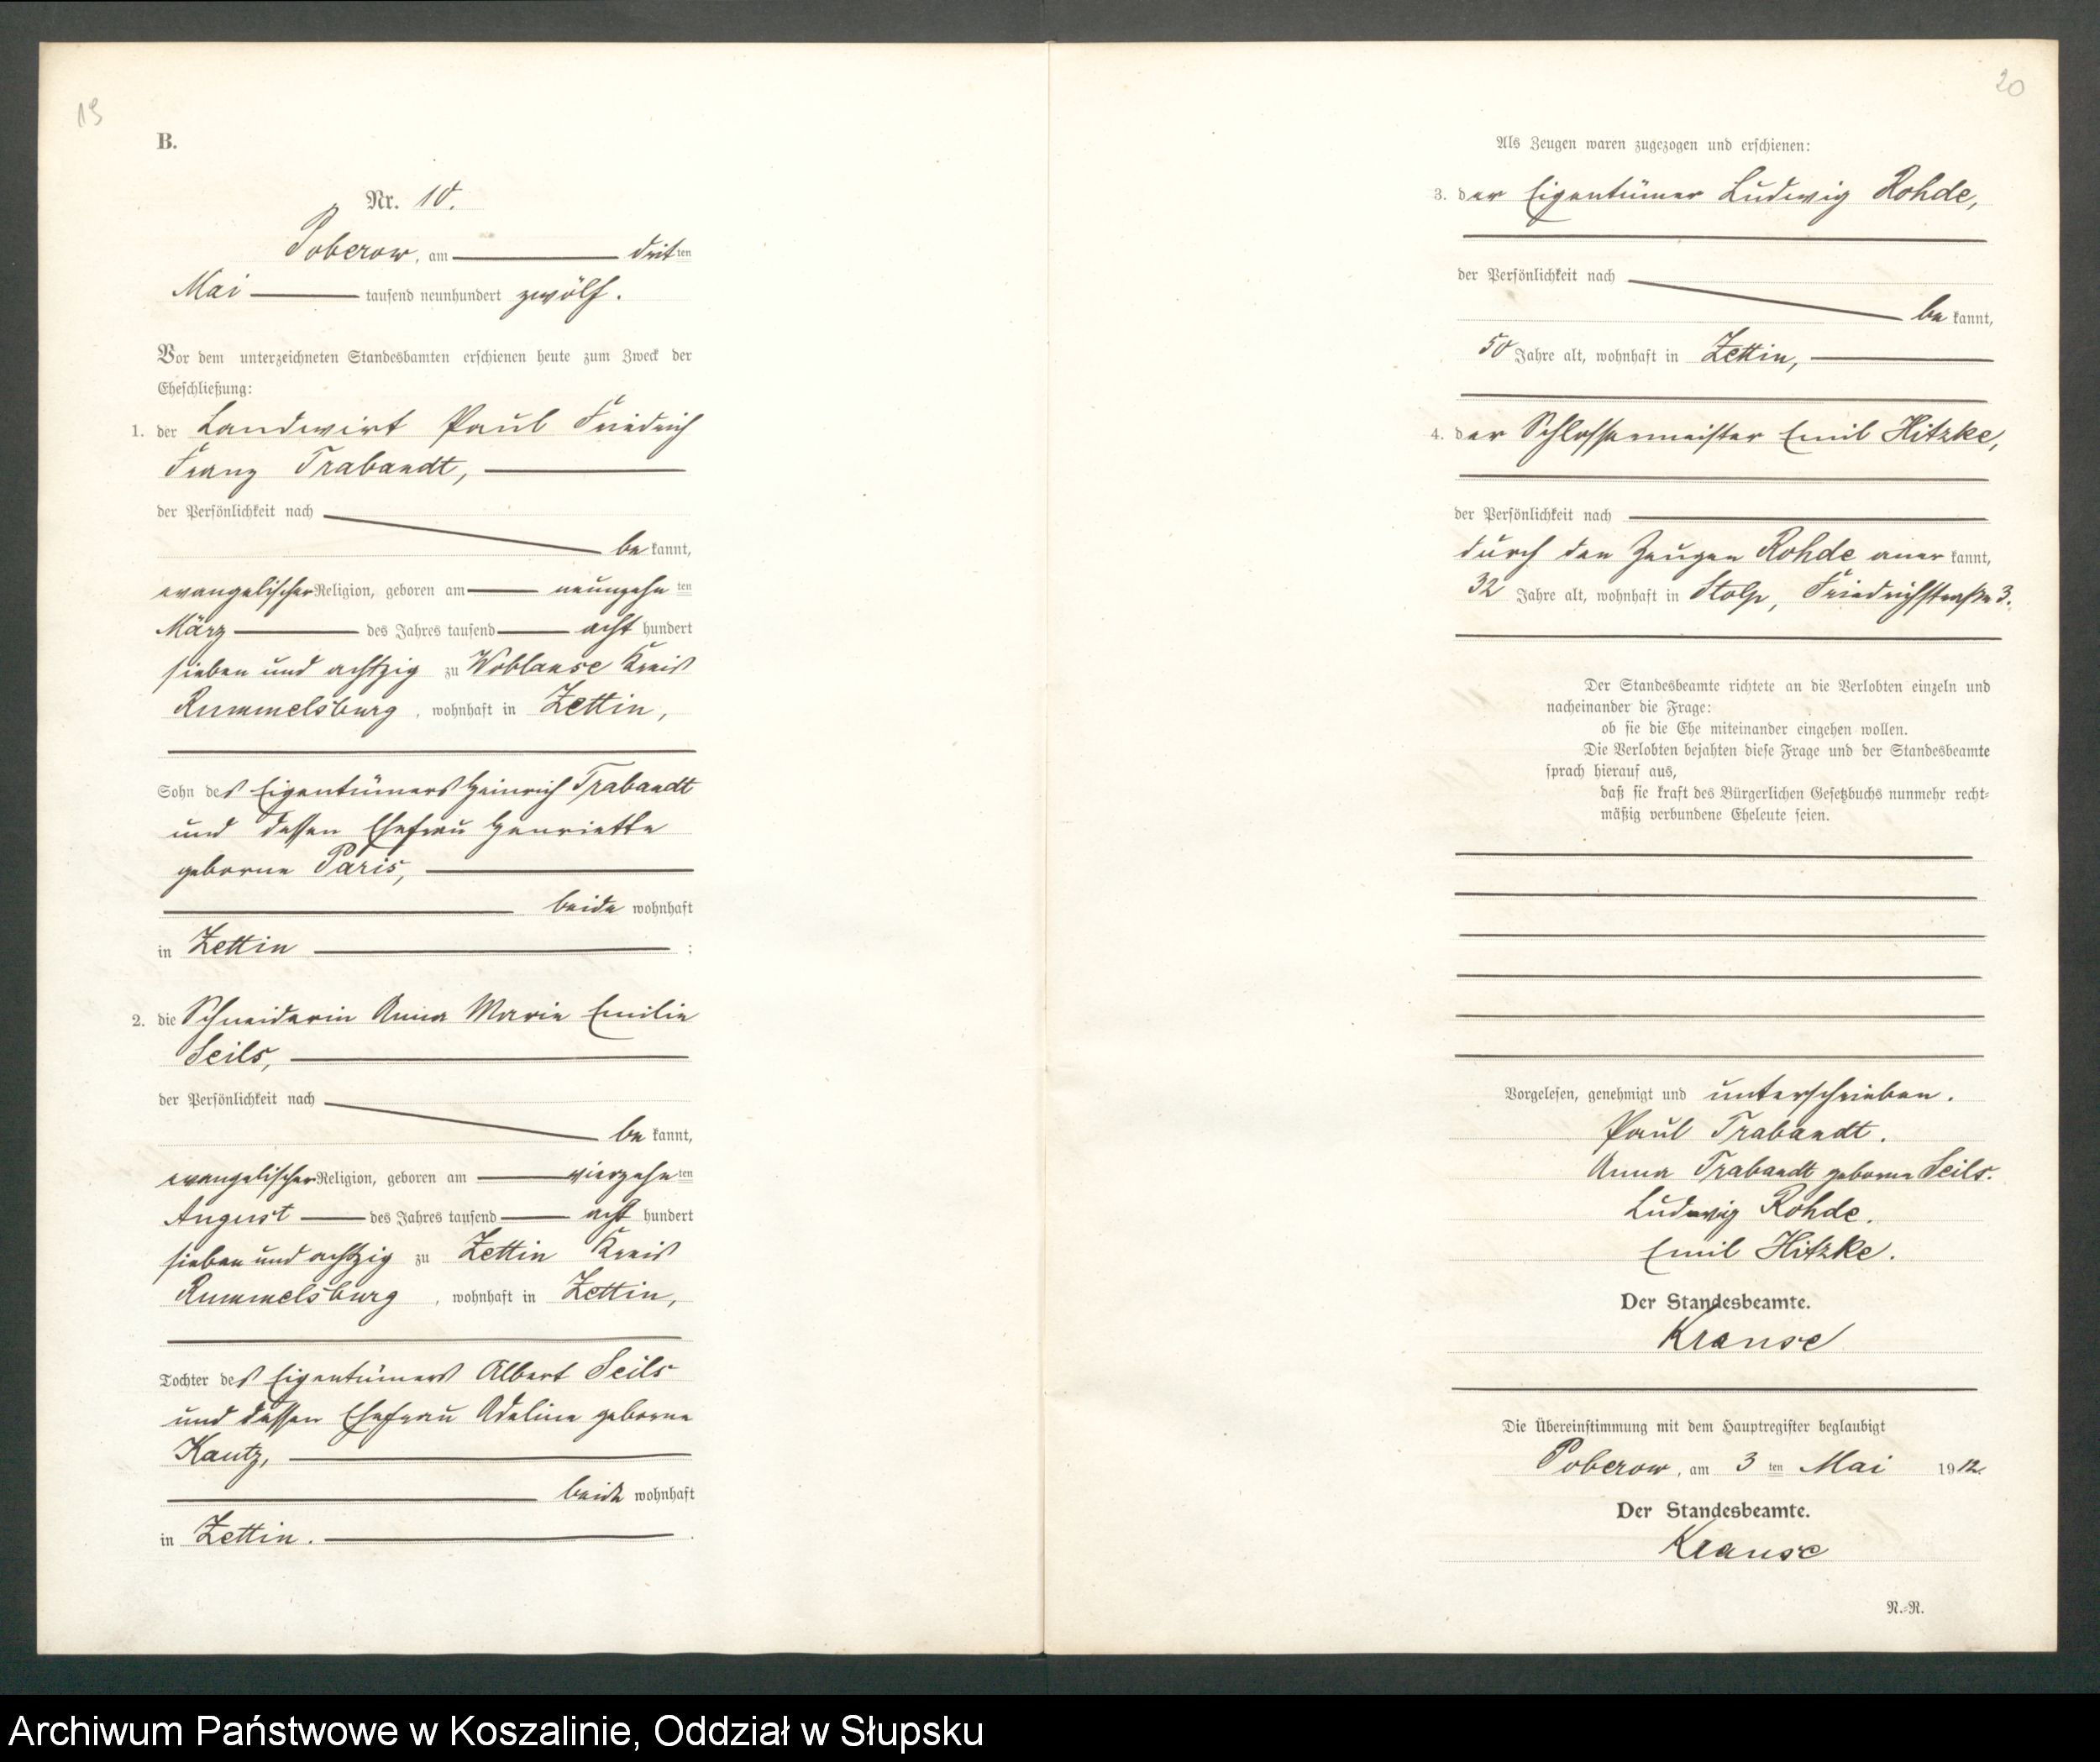 19
B.
Nr. 10.
Poberow, am dritten
Mai tausend neunhundert zwölf.
Vor dem unterzeichneten Standesbamten erschienen heute zum Zweck der
Eheschließung:
1. der Landwirt Paul Friedrich
Franz Trabandt,
der Persönlichkeit nach
bekannt,
evangelischer Religion, geboren am neunzehnten
März des Jahres tausend acht hundert
sieben und achtzig zu Woblanse Kreis
Rummelsburg, wohnhaft in Zettin,
Sohn des Eigentümers Heinrich Trabandt
und dessen Ehefrau Henriette
geborne Paris,
beide wohnhaft
in Zettin ;
2. die Schneiderin Anna Marie Emilie
Seils,
der Persönlichkeit nach
bekannt,
evangelischer Religion, geboren am vierzehnten
August des Jahres tausend acht hundert
sieben und achtzig zu Zettin Kreis
Rummelsburg, wohnhaft in Zettin,
Tochter des Eigentümers Albert Seils
und dessen Ehefrau Adeline geborne
Kautz,
beide wohnhaft
in Zettin.
20
Als Zeugen waren zugezogen und erschienen:
3. der Eigentümer Ludwig Rohde,
der Persönlichkeit nach
bekannt,
50 Jahre alt, wohnhaft in Zettin,
4. der Schlossermeister Emil Hitzke,
der Persönlichkeit nach
durch den Zeugen Rohde anerkannt,
32 Jahre alt, wohnhaft in Stolp, Friedrichstraße 3.
Der Standesbeamte richtete an die Verlobten einzeln und
nacheinander die Frage:
ob sie die Ehe miteinander eingehen wollen.
Die Verlobten bejahten diese Frage und der Standesbeamte
sprach hierauf aus,
daß sie kraft des Bürgerlichen Gesetzbuchs nunmehr recht-
mäßig verbundene Eheleute seien.
Vorgelesen, genehmigt und unterschrieben.
Paul Trabandt.
Anna Trabandt geborne Seils.
Ludwig Rohde.
Emil Hitzke.
Der Standesbeamte.
Krause
Die Übereinstimmung mit dem Hauptregister beglaubigt
Poberow, am 3 ten Mai 1912.
Der Standesbeamte.
Krause
N.-R.
Archiwum Państwowe w Koszalinie, Oddział w Słupsku